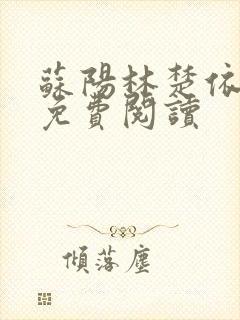 蘇陽林楚依
免費閱讀
傾落塵